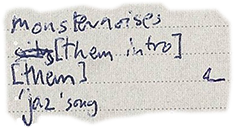 monsternoises
[them intro]
[them]
'jaz' song